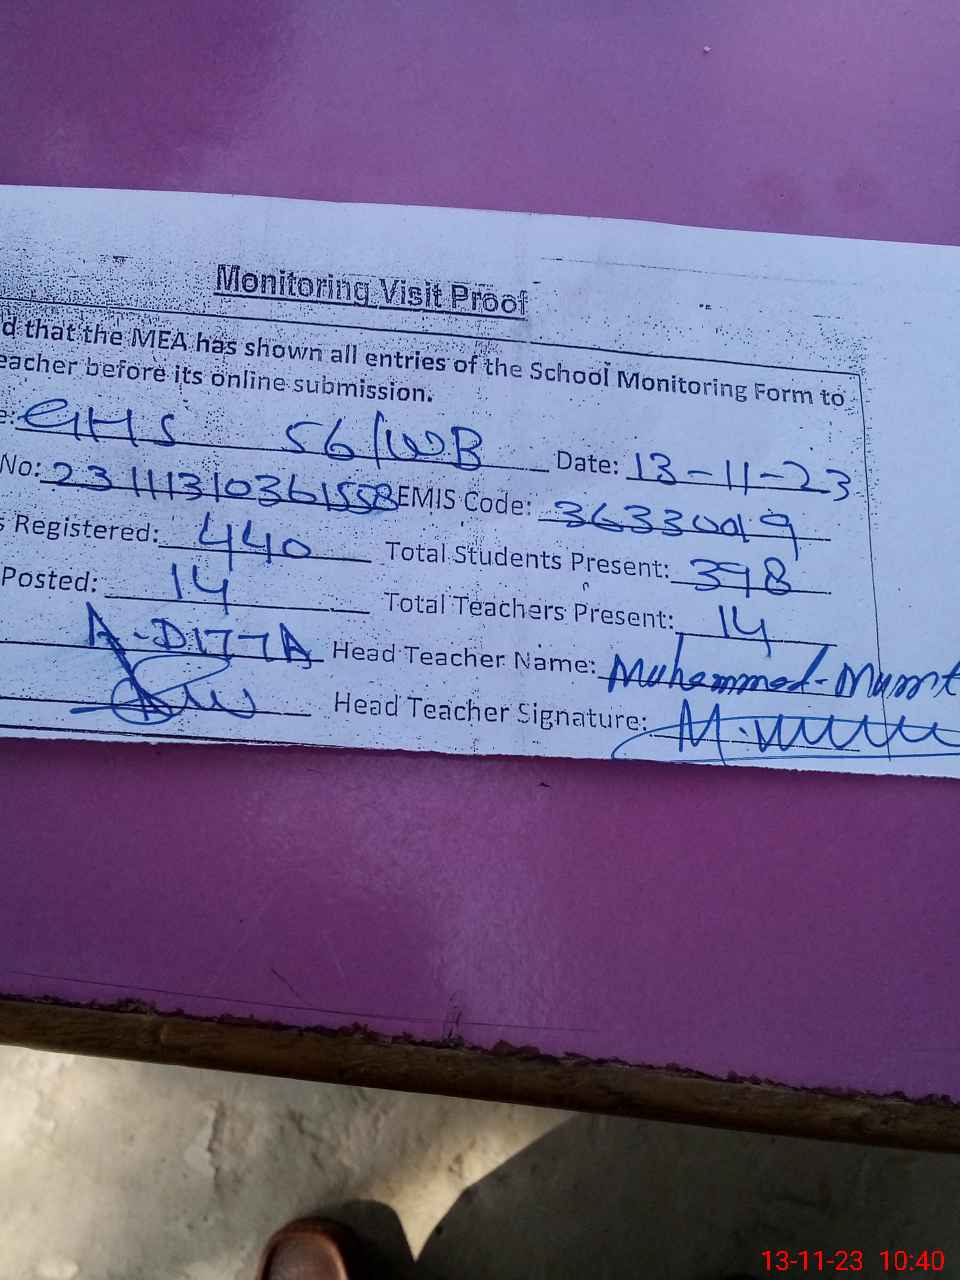 Monitoring Visit Proof
d that the MEA has shown all entries of the School Monitoring Form to
eacher before its online submission.
e: GHS 56/WB Date: 13-11-23
No: 2311131036155８ EMIS Code: 36330019
s Registered: 440 Total Students Present: 398
Posted: 14 Total Teachers Present: 14
A-DITTA Head Teacher Name: Muhammad-Mumt
Head Teacher Signature:
13-11-23 10:40